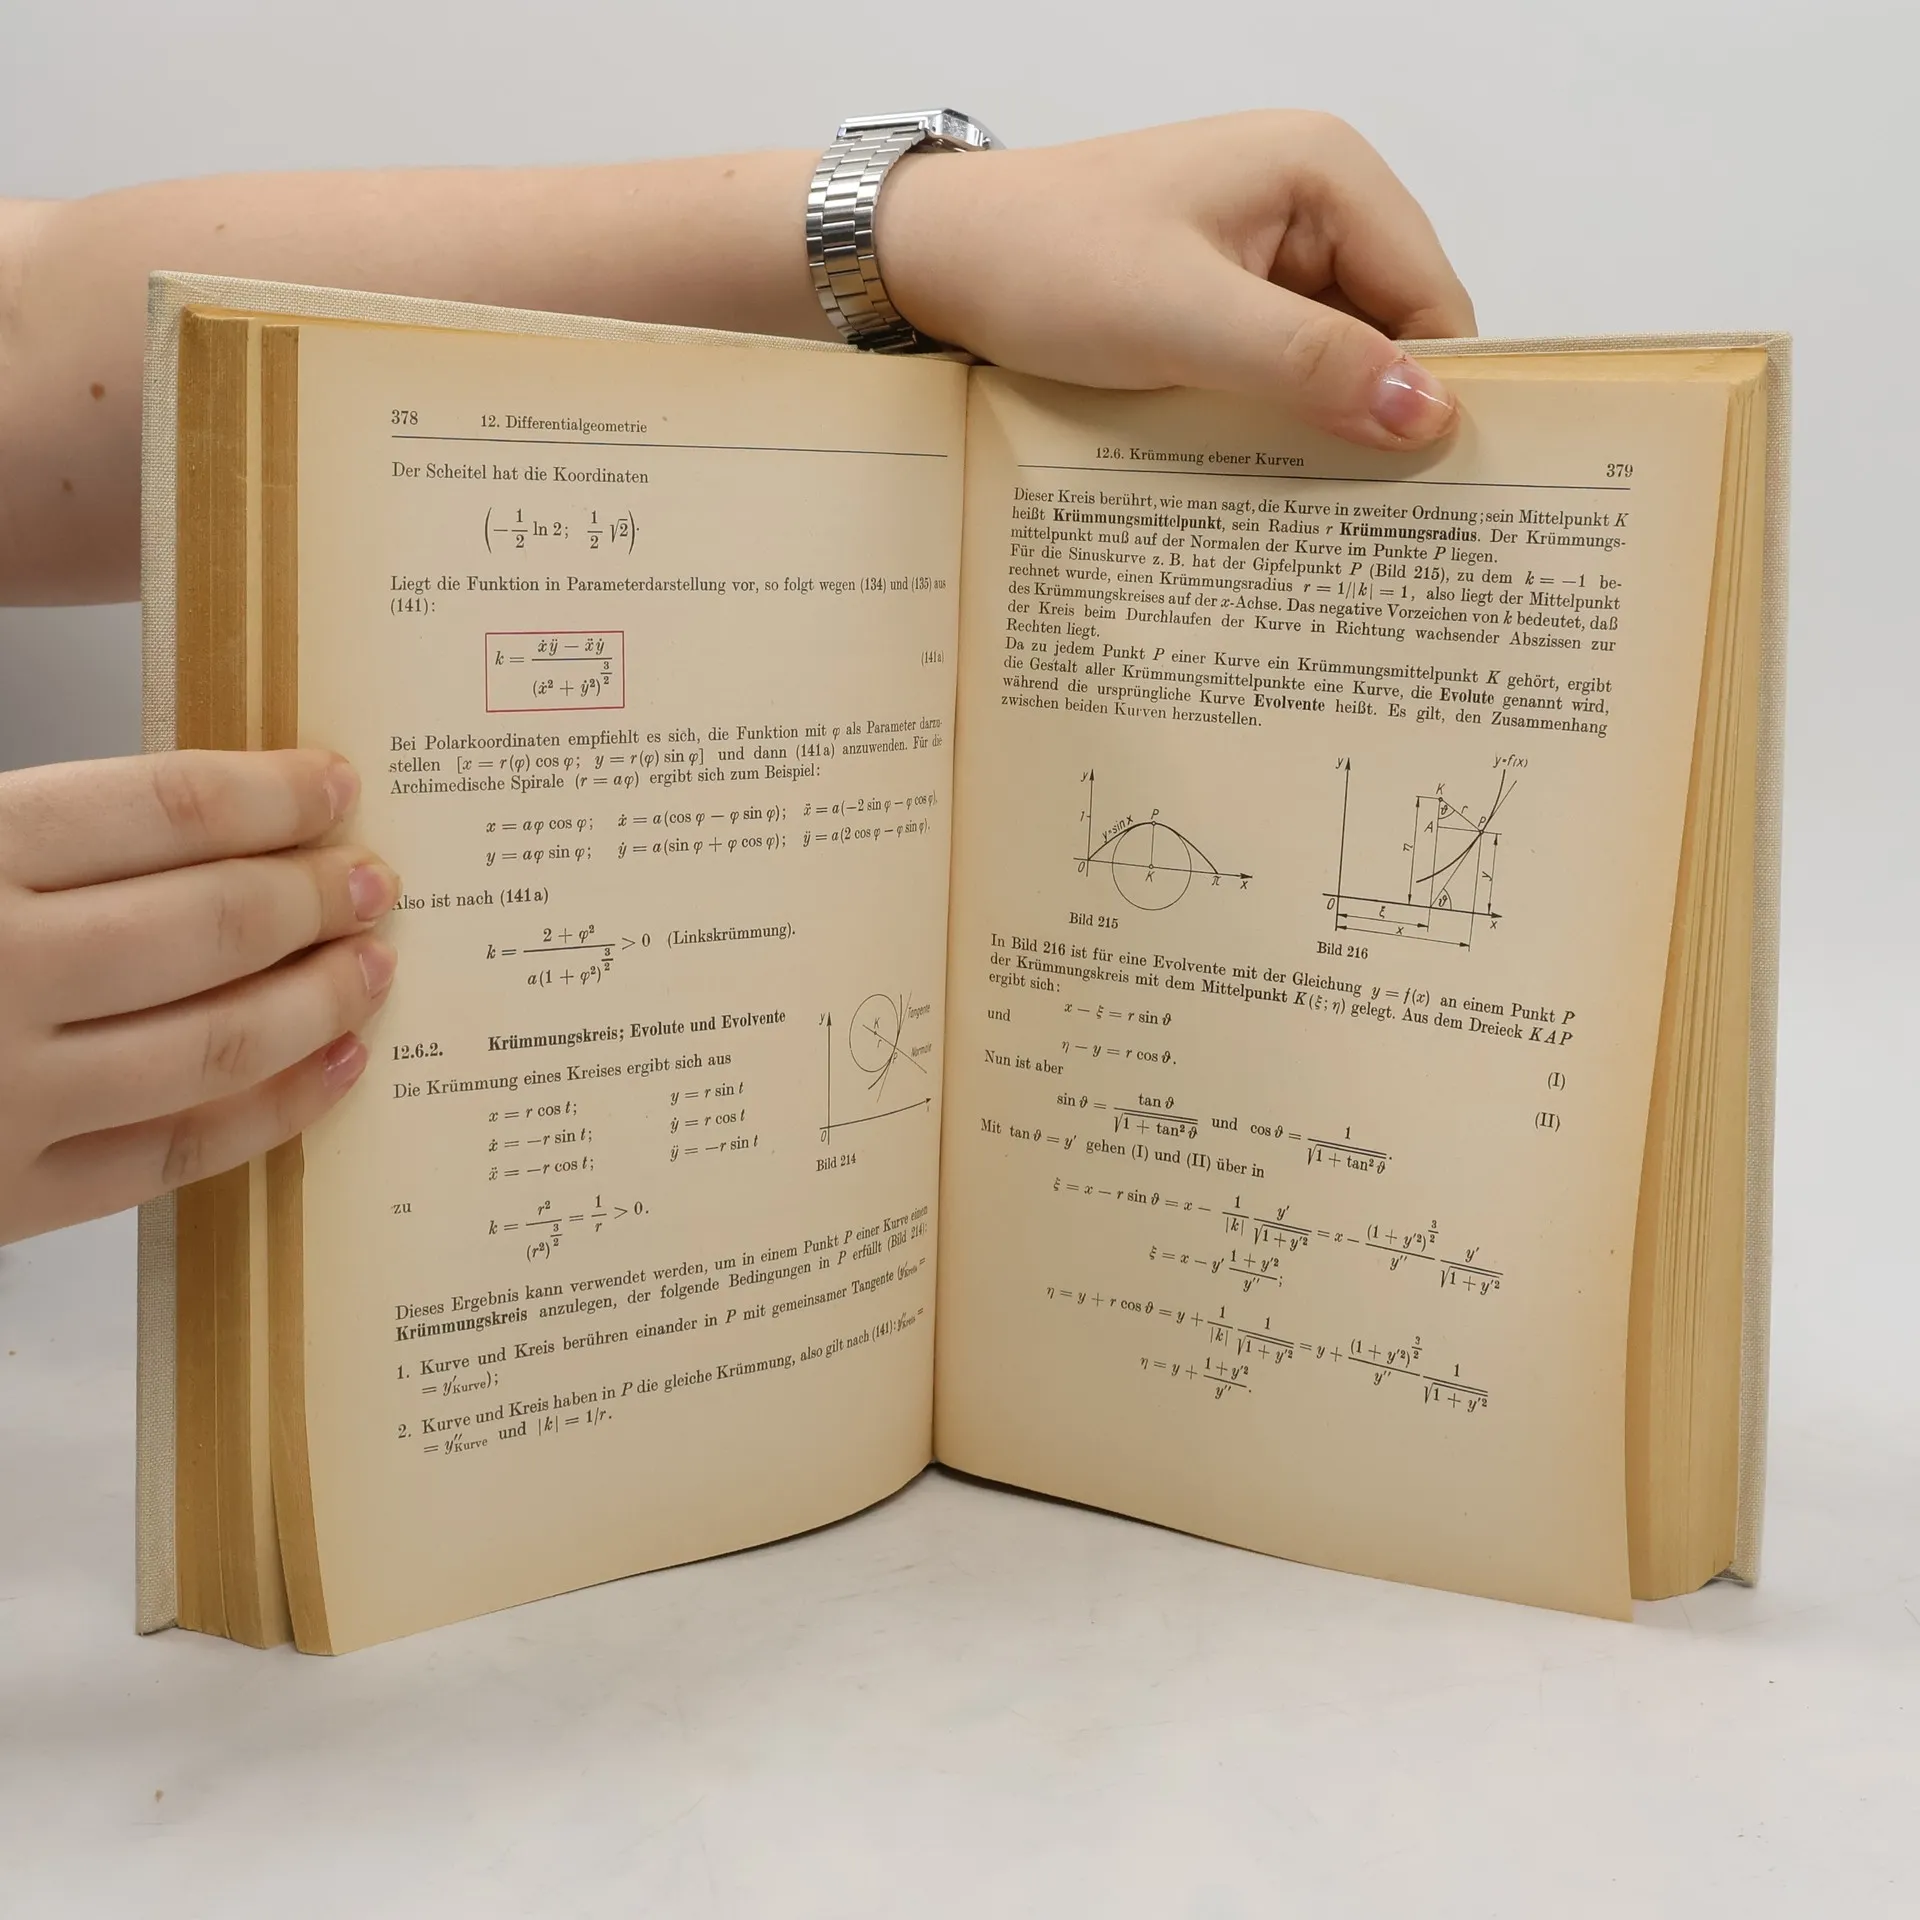 378 12. Differentialgeometrie
Der Scheitel hat die Koordinaten
(−1/2 ln 2; 1/2 √2).
Liegt die Funktion in Parameterdarstellung vor, so folgt wegen (134) und (135) aus
(141):
k = (ẋÿ − ẍẏ)/(ẋ² + ẏ²)^(3/2) (141a)
Bei Polarkoordinaten empfiehlt es sich, die Funktion mit φ als Parameter darzu-
stellen [x = r(φ) cos φ; y = r(φ) sin φ] und dann (141a) anzuwenden. Für die
Archimedische Spirale (r = aφ) ergibt sich zum Beispiel:
x = aφ cos φ; ẋ = a(cos φ − φ sin φ); ẍ = a(−2 sin φ − φ cos φ),
y = aφ sin φ; ẏ = a(sin φ + φ cos φ); ÿ = a(2 cos φ − φ sin φ).
Also ist nach (141a)
k = (2 + φ²)/(a(1 + φ²)^(3/2)) > 0 (Linkskrümmung).
12.6.2. Krümmungskreis; Evolute und Evolvente
Die Krümmung eines Kreises ergibt sich aus
x = r cos t; y = r sin t
ẋ = −r sin t; ẏ = r cos t
ẍ = −r cos t; ÿ = −r sin t
zu
k = r²/(r²)^(3/2) = 1/r > 0.
y K r P Tangente Normale 0 x
Bild 214
Dieses Ergebnis kann verwendet werden, um in einem Punkt P einer Kurve einen
Krümmungskreis anzulegen, der folgende Bedingungen in P erfüllt (Bild 214):
1. Kurve und Kreis berühren einander in P mit gemeinsamer Tangente (y′Kreis =
= y′Kurve);
2. Kurve und Kreis haben in P die gleiche Krümmung, also gilt nach (141): y″Kreis =
= y″Kurve und |k| = 1/r.
12.6. Krümmung ebener Kurven 379
Dieser Kreis berührt, wie man sagt, die Kurve in zweiter Ordnung; sein Mittelpunkt K
heißt Krümmungsmittelpunkt, sein Radius r Krümmungsradius. Der Krümmungs-
mittelpunkt muß auf der Normalen der Kurve im Punkte P liegen.
Für die Sinuskurve z. B. hat der Gipfelpunkt P (Bild 215), zu dem k = −1 be-
rechnet wurde, einen Krümmungsradius r = 1/|k| = 1, also liegt der Mittelpunkt
des Krümmungskreises auf der x-Achse. Das negative Vorzeichen von k bedeutet, daß
der Kreis beim Durchlaufen der Kurve in Richtung wachsender Abszissen zur
Rechten liegt.
Da zu jedem Punkt P einer Kurve ein Krümmungsmittelpunkt K gehört, ergibt
die Gestalt aller Krümmungsmittelpunkte eine Kurve, die Evolute genannt wird,
während die ursprüngliche Kurve Evolvente heißt. Es gilt, den Zusammenhang
zwischen beiden Kurven herzustellen.
y 1 y=sin x P 0 K π x
Bild 215
y y=f(x) K ϑ r A P η y ϑ 0 ξ x x
Bild 216
In Bild 216 ist für eine Evolvente mit der Gleichung y = f(x) an einem Punkt P
der Krümmungskreis mit dem Mittelpunkt K(ξ; η) gelegt. Aus dem Dreieck KAP
ergibt sich:
x − ξ = r sin ϑ (I)
und
η − y = r cos ϑ. (II)
Nun ist aber
sin ϑ = tan ϑ/√(1 + tan² ϑ) und cos ϑ = 1/√(1 + tan² ϑ).
Mit tan ϑ = y′ gehen (I) und (II) über in
ξ = x − r sin ϑ = x − 1/|k| y′/√(1 + y′²) = x − (1 + y′²)^(3/2)/y″ y′/√(1 + y′²)
ξ = x − y′ (1 + y′²)/y″;
η = y + r cos ϑ = y + 1/|k| 1/√(1 + y′²) = y + (1 + y′²)^(3/2)/y″ 1/√(1 + y′²)
η = y + (1 + y′²)/y″.